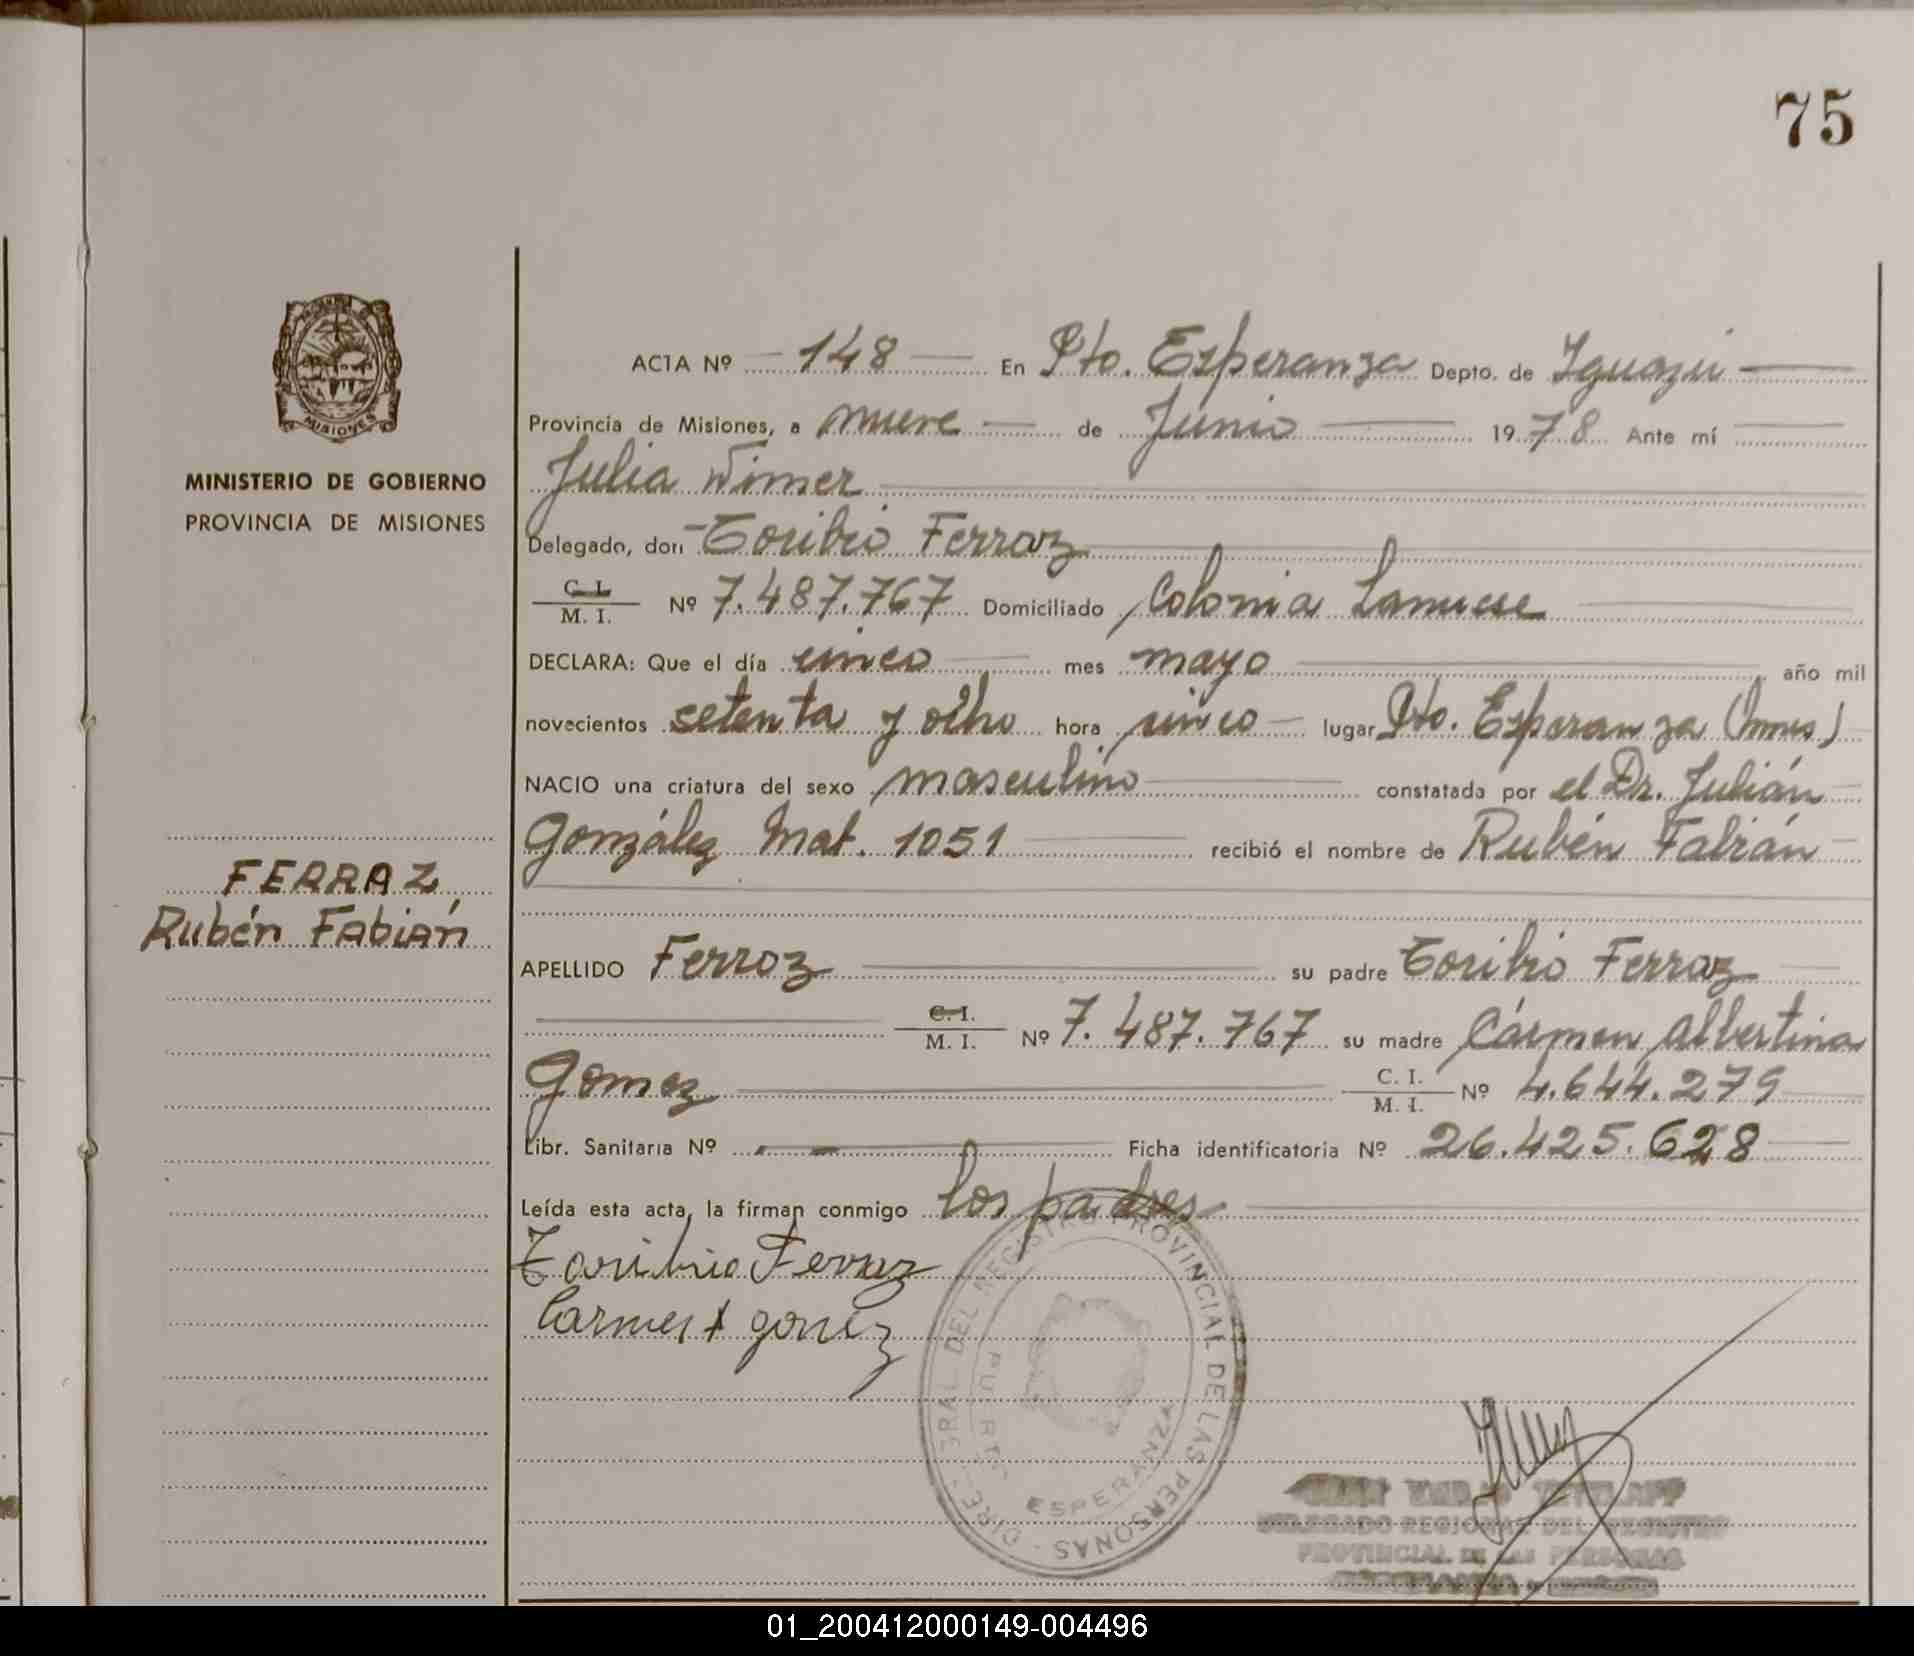 75
MISIONES
MINISTERIO DE GOBIERNO
PROVINCIA DE MISIONES
FERRAZ,
Rubén Fabián
ACTA Nº 148 En Pto. Esperanza Depto. de Iguazú
Provincia de Misiones, a nueve de Junio 1978 Ante mí
Julia Wimer
Delegado, don Toribio Ferraz
C. I. / M. I. Nº 7.487.767 Domiciliado Colonia Lanusse
DECLARA: Que el día cinco mes mayo año mil
novecientos setenta y ocho hora cinco lugar Pto. Esperanza (Mnes)
NACIO una criatura del sexo masculino constatada por el Dr. Julián
González Mat. 1051 recibió el nombre de Rubén Fabián
APELLIDO Ferraz su padre Toribio Ferraz
C. I. / M. I. Nº 7.487.767 su madre Cármen Albertina
Gomez C. I. / M. I. Nº 4.644.279
Libr. Sanitaria Nº Ficha identificatoria Nº 26.425.628
Leída esta acta, la firman conmigo los padres
Toribio Ferraz
Carmen A gomez
DEL REGISTRO PROVINCIAL DE LAS PERSONAS
ESPERANZA
DELEGADO REGIONAL DEL REGISTRO
PROVINCIAL DE LAS PERSONAS
01_200412000149-004496